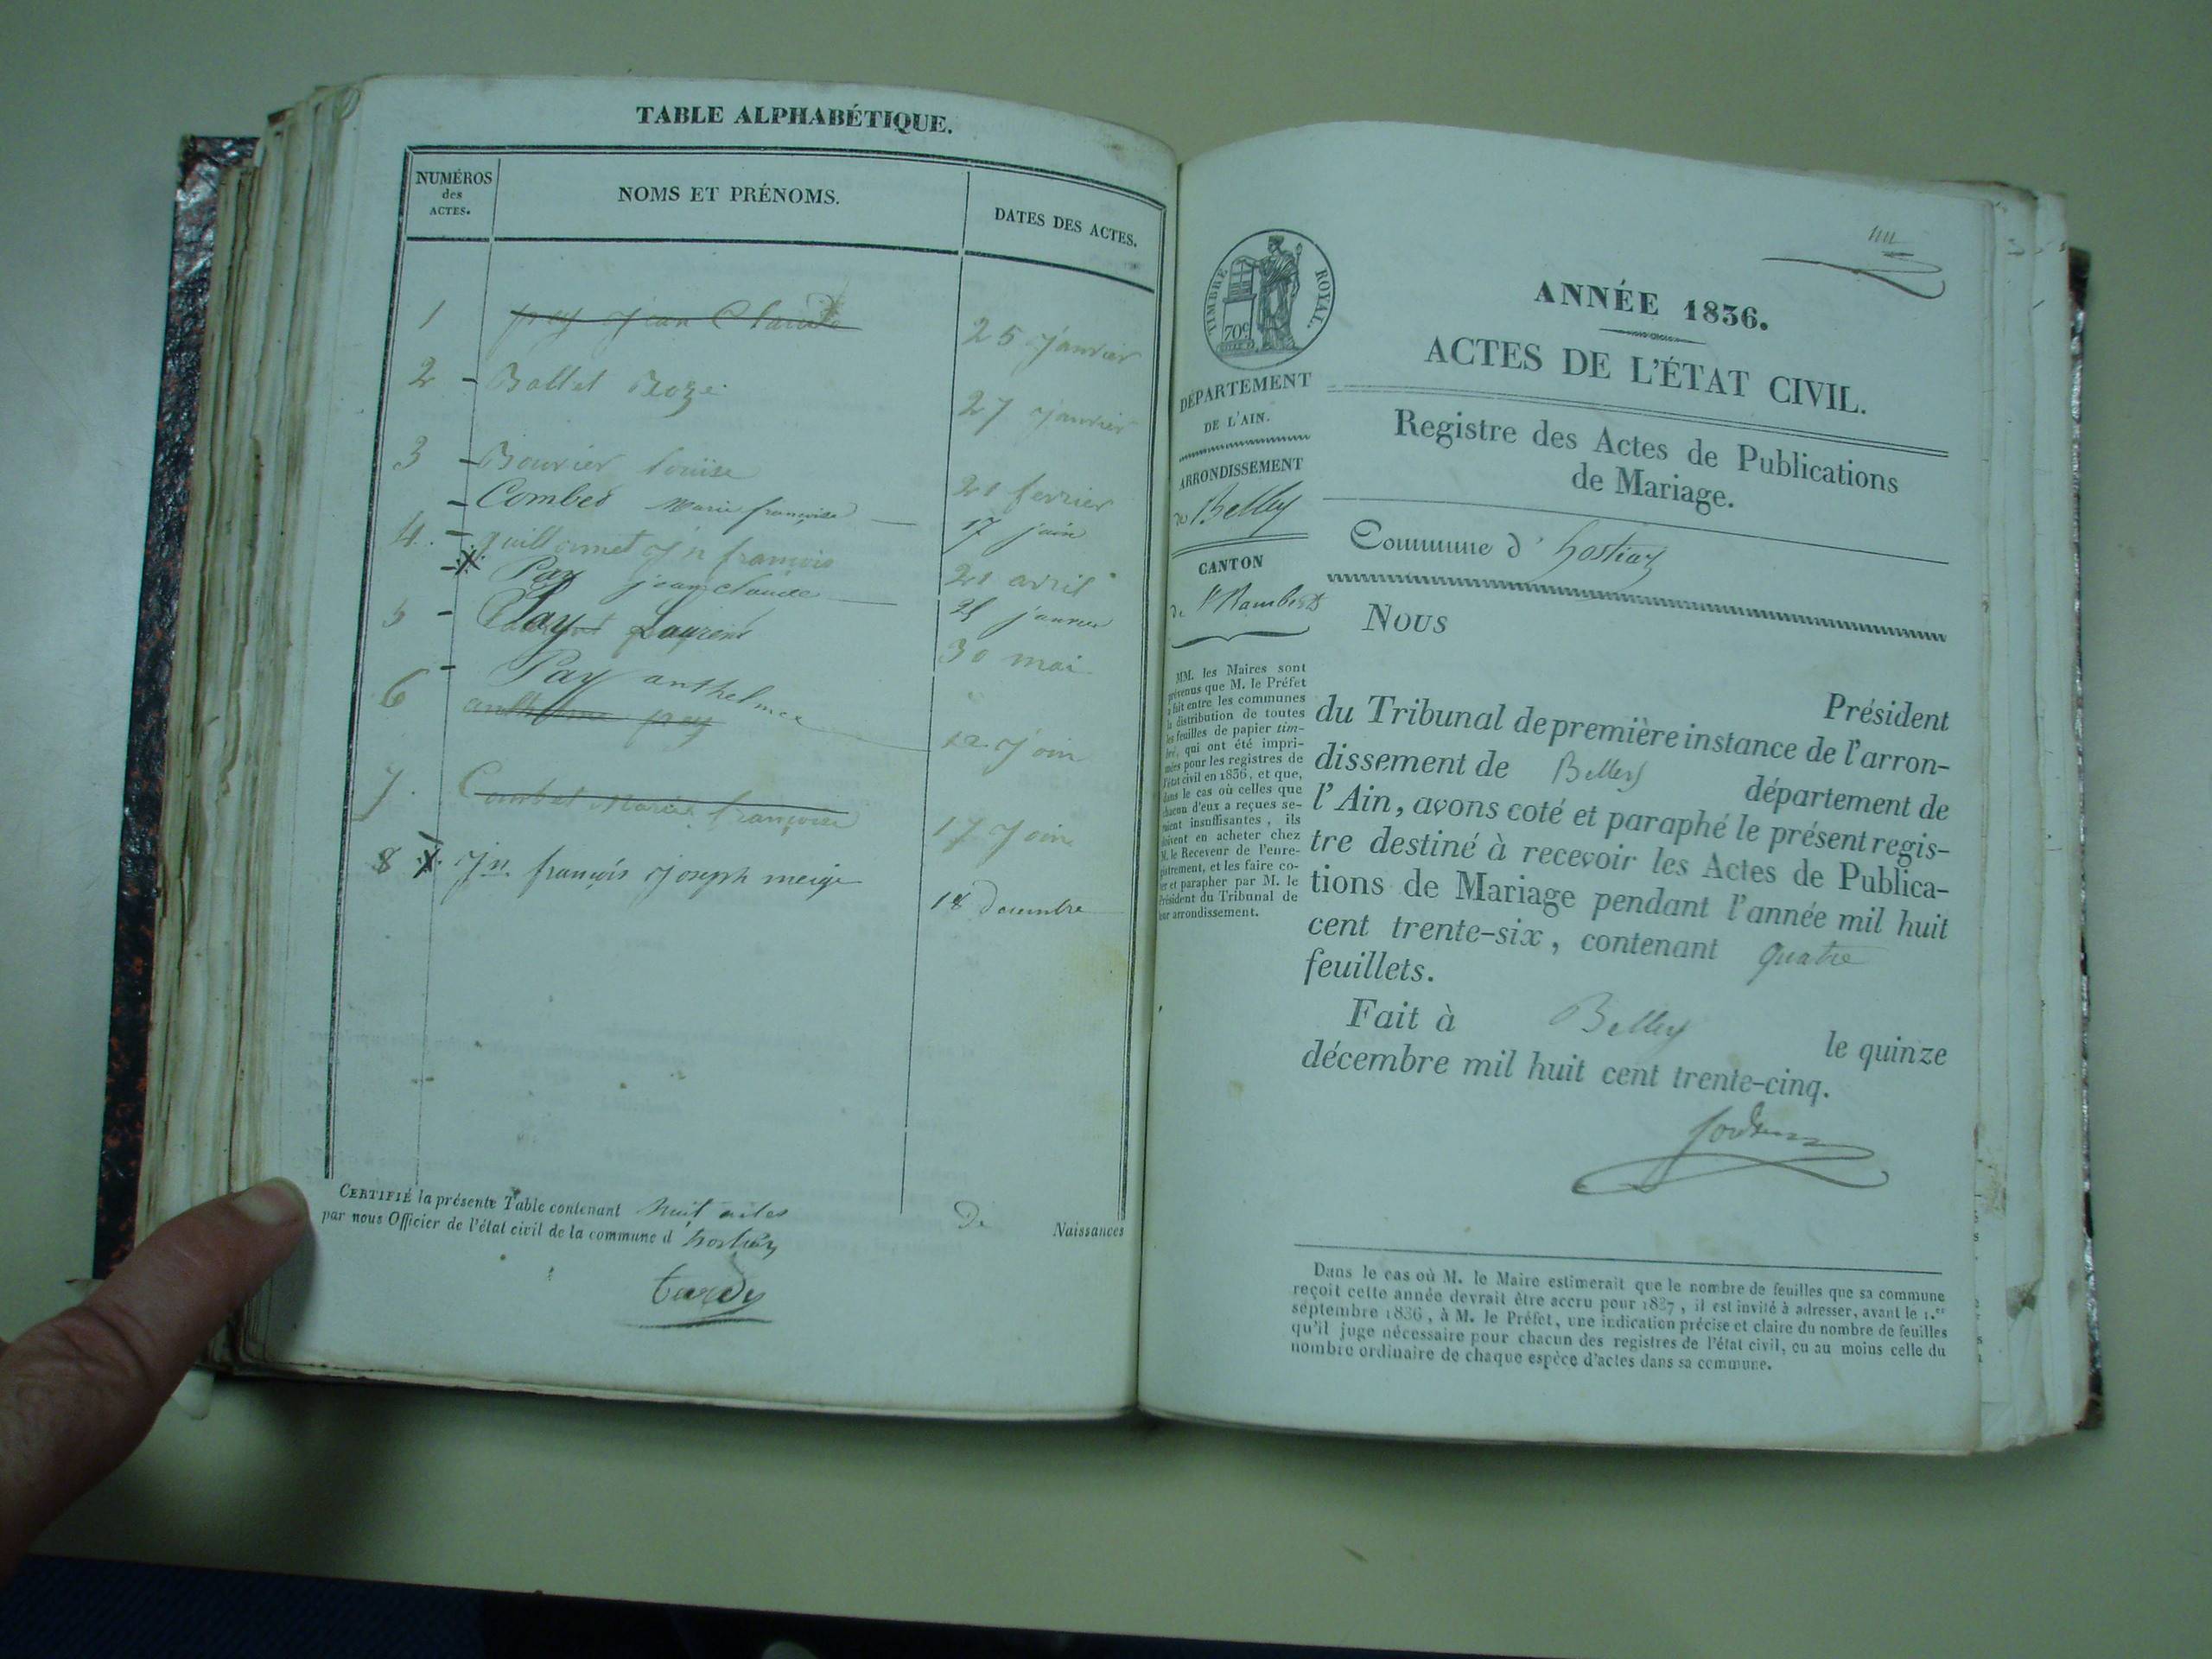 TABLE ALPHABÉTIQUE.
NUMÉROS
des
ACTES.
NOMS ET PRÉNOMS.
DATES DES ACTES.
1 pey jean Claude 25 janvier
2 - Ballet Roze 27 janvier
3 - Bouvier Louise 21 fevrier
- Combes Marie françoise 17 juin
4. - guillomet jn françois 21 avril
- Pay jean claude 25 janvier
5 - Pay Laurent 30 mai
- Pay anthelme
6 anthelme pey 12 join
7. Combet Marie françoise 17 join
8 jn. françois joseph meige 18 decembre
CERTIFIÉ la présente Table contenant huit actes de Naissances
par nous Officier de l'état civil de la commune d hostiaz
tardy
TIMBRE ROYAL.
70c
ANNÉE 1836.
ACTES DE L'ÉTAT CIVIL.
DÉPARTEMENT
DE L'AIN.
ARRONDISSEMENT
de Belley
CANTON
de St Rambert
Registre des Actes de Publications
de Mariage.
Commune d' hostiaz
MM. les Maires sont
prévenus que M. le Préfet
a fait entre les communes
la distribution de toutes
les feuilles de papier tim-
bré, qui ont été impri-
mées pour les registres de
l'état civil en 1836, et que,
dans le cas où celles que
chacun d'eux a reçues se-
raient insuffisantes, ils
doivent en acheter chez
M. le Receveur de l'enre-
gistrement, et les faire co-
ter et parapher par M. le
Président du Tribunal de
leur arrondissement.
Nous
Président
du Tribunal de première instance de l'arron-
dissement de Belley département de
l'Ain, avons coté et paraphé le présent regis-
tre destiné à recevoir les Actes de Publica-
tions de Mariage pendant l'année mil huit
cent trente-six, contenant quatre
feuillets.
Fait à Belley le quinze
décembre mil huit cent trente-cinq.
Dans le cas où M. le Maire estimerait que le nombre de feuilles que sa commune
reçoit cette année devrait être accru pour 1837, il est invité à adresser, avant le 1.er
septembre 1836, à M. le Préfet, une indication précise et claire du nombre de feuilles
qu'il juge nécessaire pour chacun des registres de l'état civil, ou au moins celle du
nombre ordinaire de chaque espèce d'actes dans sa commune.